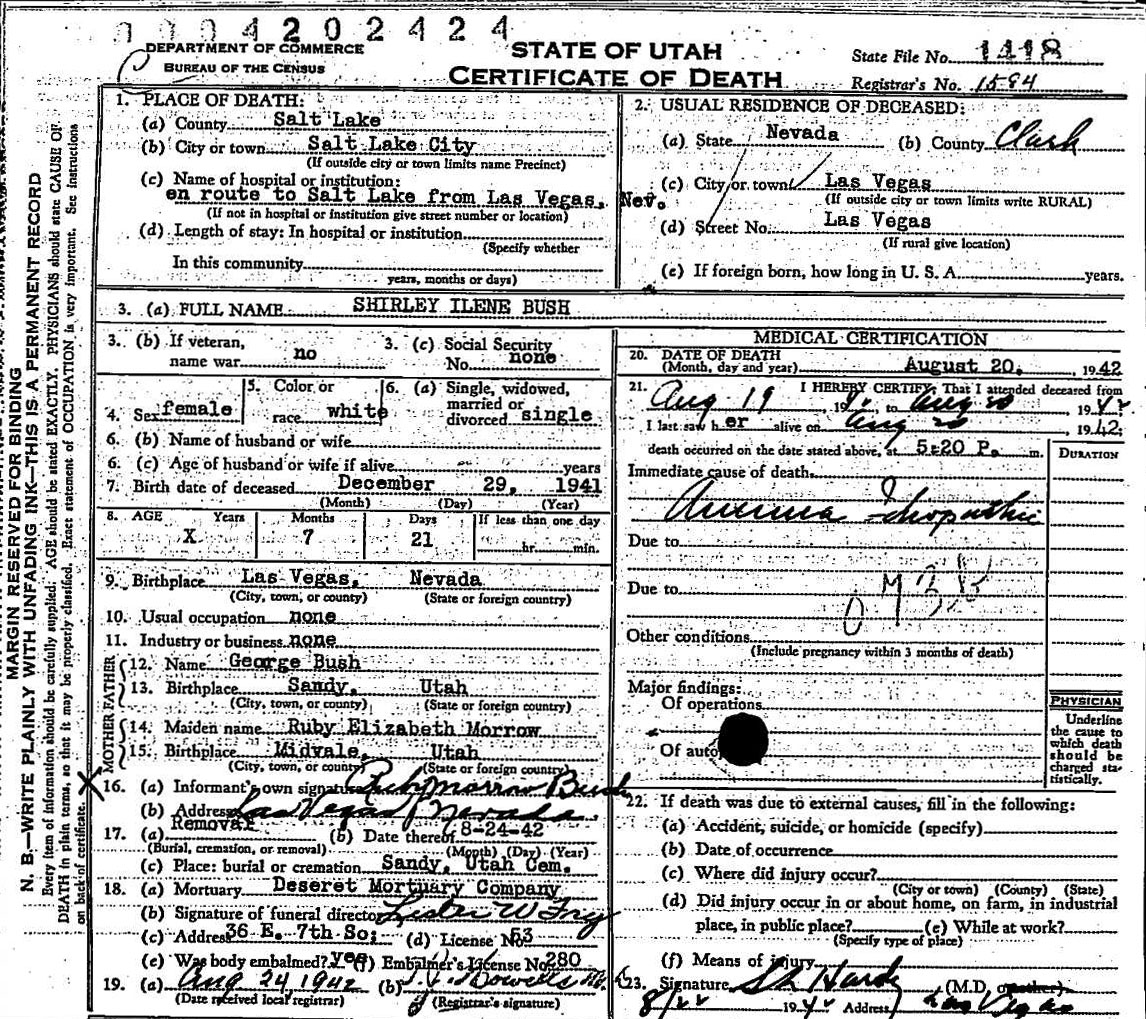 0004202424
DEPARTMENT OF COMMERCE
BUREAU OF THE CENSUS
STATE OF UTAH
CERTIFICATE OF DEATH
State File No. 1418
Registrar's No. 1584
MARGIN RESERVED FOR BINDING
N. B.—WRITE PLAINLY WITH UNFADING INK—THIS IS A PERMANENT RECORD
Every item of information should be carefully supplied. AGE should be stated EXACTLY. PHYSICIANS should state CAUSE OF
DEATH in plain terms, so that it may be properly classified. Exact statement of OCCUPATION is very important. See instructions
on back of certificate.
1. PLACE OF DEATH:
(a) County Salt Lake
(b) City or town Salt Lake City
(If outside city or town limits name Precinct)
(c) Name of hospital or institution:
en route to Salt Lake from Las Vegas, Nev.
(If not in hospital or institution give street number or location)
(d) Length of stay: In hospital or institution
(Specify whether
In this community
years, months or days)
2. USUAL RESIDENCE OF DECEASED:
(a) State Nevada (b) County Clark
(c) City or town Las Vegas
(If outside city or town limits write RURAL)
(d) Street No. Las Vegas
(If rural give location)
(e) If foreign born, how long in U. S. A. years.
3. (a) FULL NAME SHIRLEY ILENE BUSH
3. (b) If veteran, name war no 3. (c) Social Security No. none
4. Sex female 5. Color or race white 6. (a) Single, widowed, married or divorced single
6. (b) Name of husband or wife
6. (c) Age of husband or wife if alive years
7. Birth date of deceased December 29, 1941
(Month) (Day) (Year)
8. AGE Years Months Days If less than one day
X 7 21 hr. min.
9. Birthplace Las Vegas, Nevada
(City, town, or county) (State or foreign country)
10. Usual occupation none
11. Industry or business none
FATHER
12. Name George Bush
13. Birthplace Sandy, Utah
(City, town, or county) (State or foreign country)
MOTHER
14. Maiden name Ruby Elizabeth Morrow
15. Birthplace Midvale, Utah
(City, town, or county) (State or foreign country)
X 16. (a) Informant's own signature Ruby Morrow Bush
(b) Address Las Vegas Nevada.
17. (a) Removal (b) Date thereof 8-24-42
(Burial, cremation, or removal) (Month) (Day) (Year)
(c) Place: burial or cremation Sandy, Utah Cem.
18. (a) Mortuary Deseret Mortuary Company
(b) Signature of funeral director Lester W Fry
(c) Address 36 E. 7th So; (d) License No 53
(e) Was body embalmed? yes (f) Embalmer's License No 280
19. (a) Aug 24, 1942 (b)
(Date received local registrar) (Registrar's signature)
MEDICAL CERTIFICATION
20. DATE OF DEATH
(Month, day and year) August 20, 1942
21. I HEREBY CERTIFY, That I attended deceased from
Aug 19 1942 to Aug 20, 1942
I last saw her alive on Aug 20 1942
death occurred on the date stated above, at 5:20 P. m.
DURATION
Immediate cause of death
Anemia Idiopathic
Due to
Due to
Other conditions
(Include pregnancy within 3 months of death)
Major findings:
Of operations
Of auto
PHYSICIAN
Underline
the cause to
which death
should be
charged sta-
tistically.
22. If death was due to external causes, fill in the following:
(a) Accident, suicide, or homicide (specify)
(b) Date of occurrence
(c) Where did injury occur?
(City or town) (County) (State)
(d) Did injury occur in or about home, on farm, in industrial
place, in public place? (e) While at work?
(Specify type of place)
(f) Means of injury
23. Signature Hardy (M.D. or other)
8/22 1942 Address Las Vegas